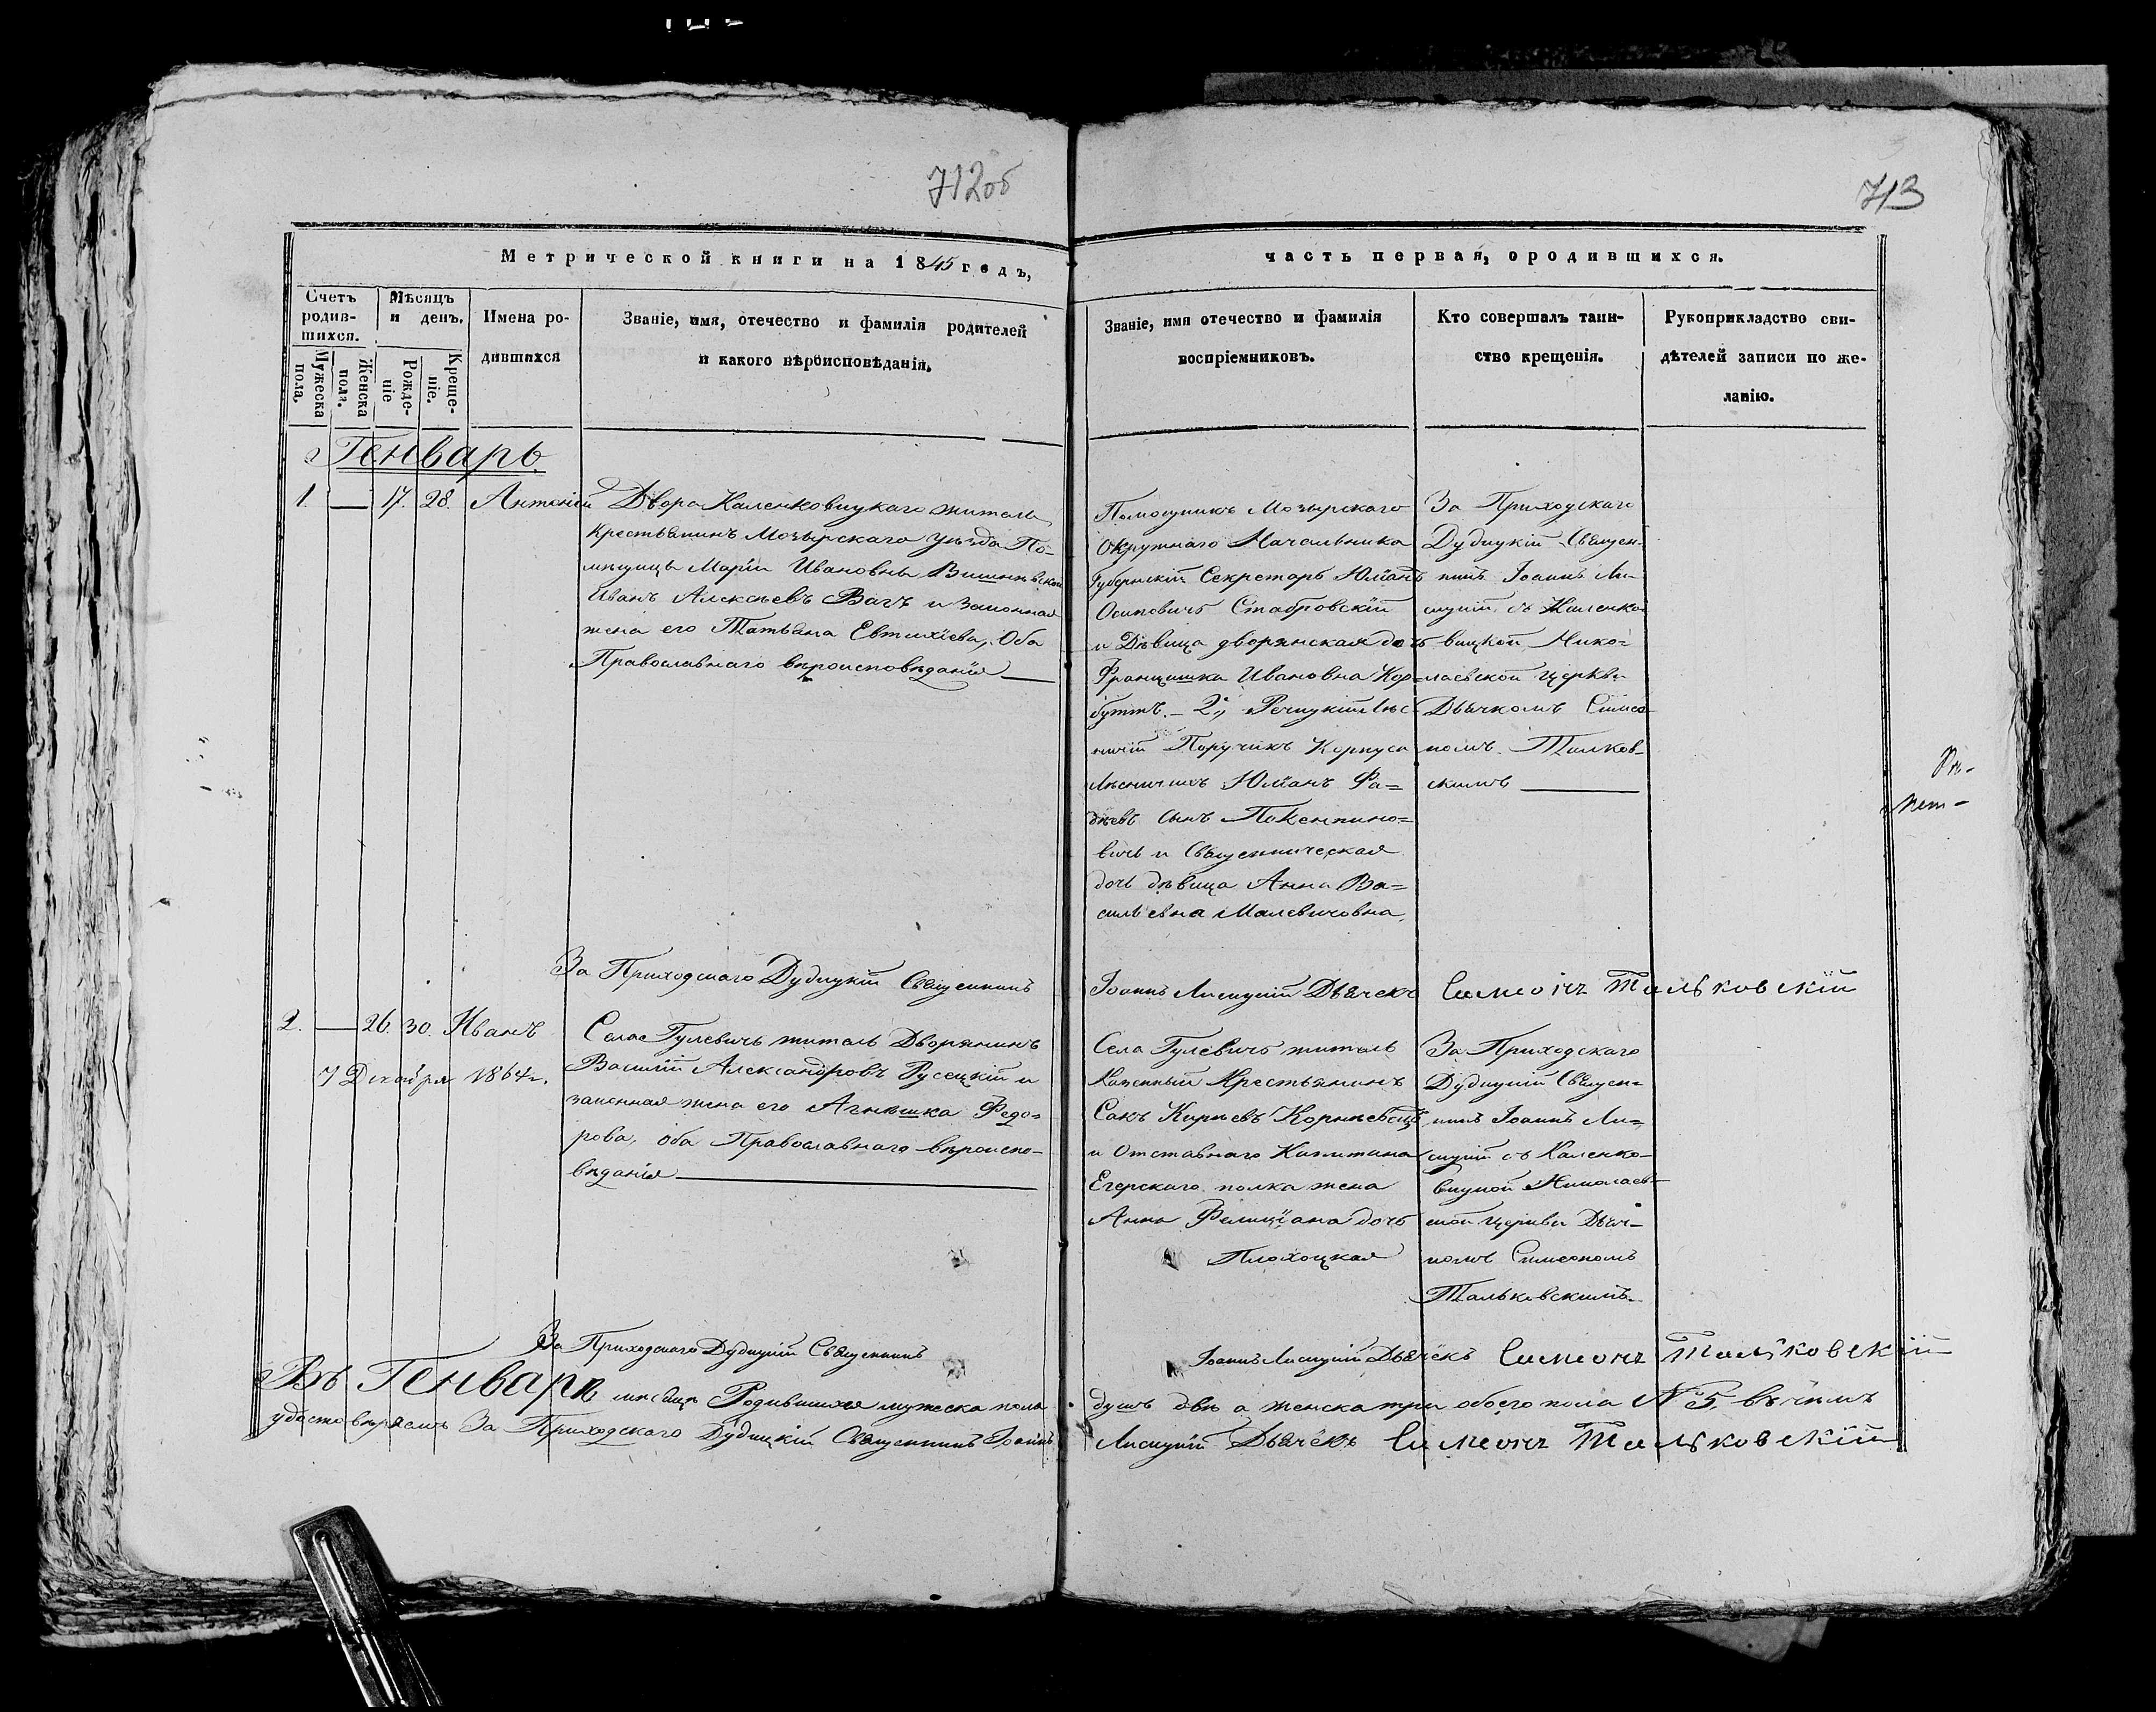 712об
713
Метрической книги на 1845 годъ,
часть первая, о родившихся.
Счетъ родив-шихся.
Мужеска пола.
Женска пола.
Мѣсяцъ и день.
Рожде-ніе
Креще-ніе.
Имена ро-
дившихся
Званіе, имя, отечество и фамилія родителей
и какого вѣроисповѣданія.
Званіе, имя отечество и фамилія
воспріемниковъ.
Кто совершалъ таин-
ство крещенія.
Рукоприкладство сви-
дѣтелей записи по же-
ланію.
Генварь
1. — 17. 28. Антоній
Двора Каленковицкаго житель
Крестьянинъ Мозырскаго уѣзда По-
мѣщицы Маріи Ивановны
Иванъ Алексѣевъ Вагъ и законная
жена его Татьяна Евтихіева, Оба
Православнаго вѣроисповѣданія —
Помощникъ Мозырскаго
Окружнаго Начальника
Губернскій Секретарь Юліанъ
Осиповичъ Стабровскій
и Дѣвица дворянская дочь
Францишка Ивановна Кор-
бутть. — 2., Речицкій Лѣс-
ничій Поручикъ Корпуса
Лѣсничихъ Юліанъ Фа=
дѣевъ сынъ
и Священническая
дочь дѣвица Анна Ва=
сильевна Малевичовна.
За Приходскаго
Дудицкій Священ-
никъ Іоаннъ Ли-
сицкій съ Каленко
вицкой Нико=
лаевской церкви
Дьячкомъ Симео
номъ Талков-
скимъ —
За Приходскаго Дудицкій Священникъ
Іоаннъ Лисицкій Дьячекъ Симеонъ Тальковскій
2. — 26. 30. Иванъ
7 Декабря 1864 г.
Села Гулевичъ житель Дворянинъ
Василій Александровъ Русецкій и
законная жена его Агнѣшка Федо=
рова, оба Православнаго вѣроиспо-
вѣданія —
Села Гулевичъ житель
Казенный Крестьянинъ
Сакъ Карнѣевъ
и Отставнаго Капитана
Егерскаго полка жена
Анна Фелиціана дочь
Плохоцкая
За Приходскаго
Дудицкій Священ=
никъ Іоаннъ Ли=
сицкій съ Каленко-
вицкой Николаев-
ской церкви Дьяч-
комъ Симеономъ
Тальковскимъ.
За Приходскаго Дудицкій Священникъ
Іоаннъ Лисицкій Дьячекъ Симеонъ Тальковскій
Въ Генварѣ мѣсяцѣ Родившихся мужеска пола
душъ двѣ а женска три обоего пола № 5, въ чемъ
удостовѣряемъ За Приходскаго Дудицкій Священникъ Іоаннъ
Лисицкій Дьячекъ Симеонъ Тальковскій